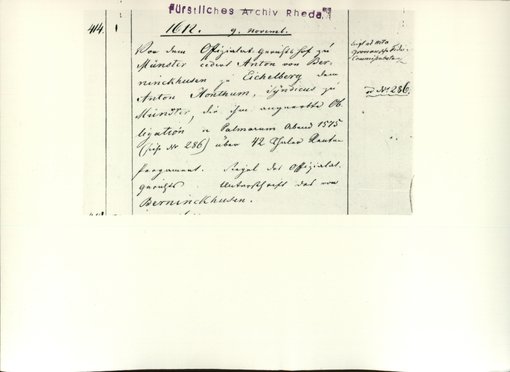 Fürstliches Archiv Rheda
414. 1 1612. 9. Novemb.
Von dem Offizialat Gerichtshof zu
Münster cedirt Anton von Ber-
ninckhusen zu Eichelberg dem
Anton Honthum, Syndicus zu
Münster, die ihm Ob
ligation a Palmarum Abend 1575
(sub Nr 286) über 42 Thaler Rente
Pergament. Siegel des Offizialat-
gerichts Unterschrift des von
Berninckhusen.
ad Nr 286.